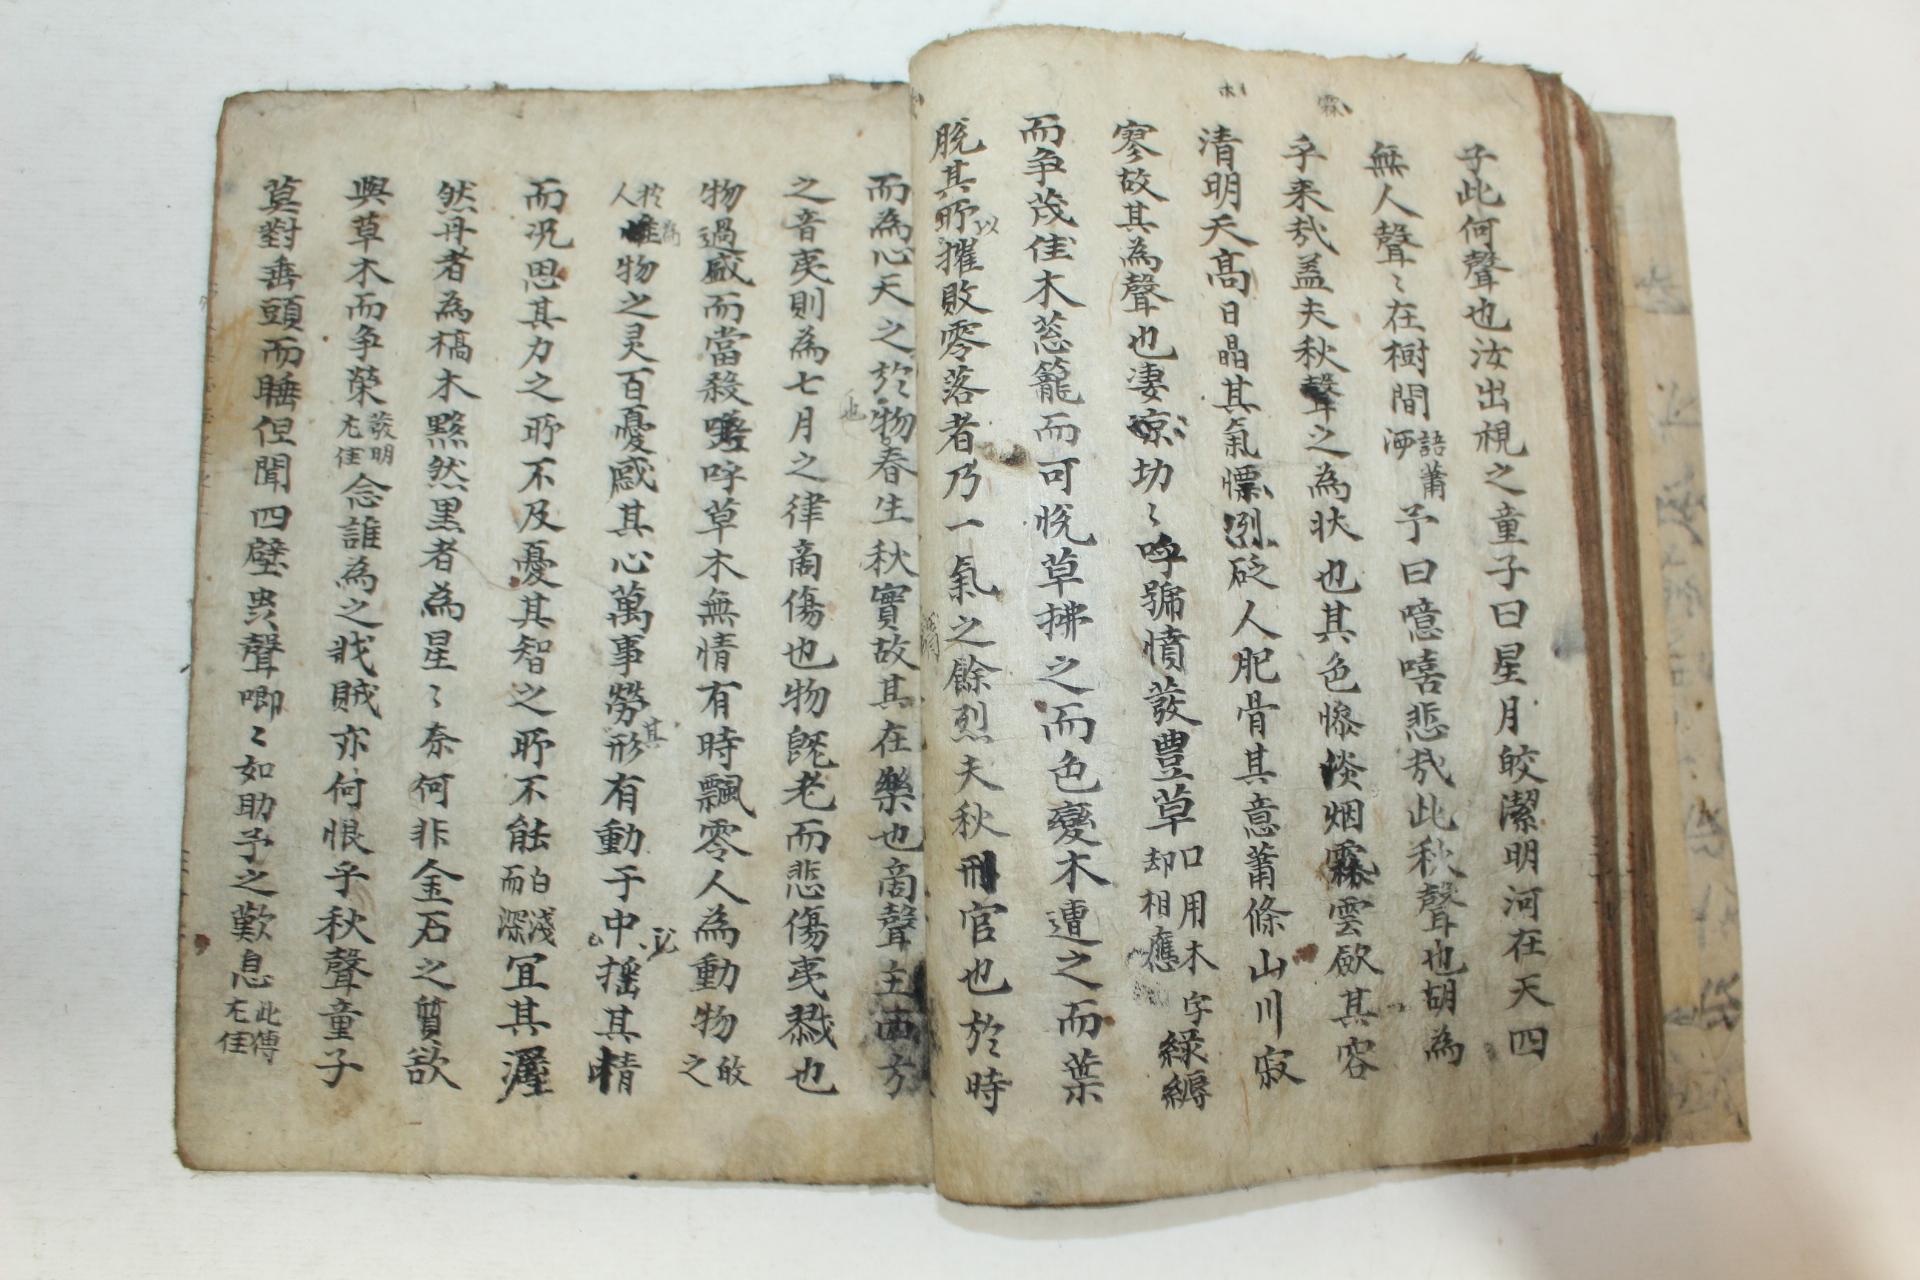 子此何聲也汝出視之童子曰星月皎潔明河在天四
無人聲〻在樹間語蕭洒予曰噫嘻悲㢤此秋聲也胡為
乎来㢤盖夫秋聲之為状也其色慘淡烟霖雲歛其容
清明天髙日晶其氣慓冽砭人肥骨其意蕭條山川寂
寥故其為聲也凄凉切〻呼號憤發豊草口用木字却相應緑縟
而争茂佳木葱籠而可悅草拂之而色變木遭之而葉
脫其所以摧敗零落者乃一氣之餘烈夫秋刑官也於時
而為心天之於物春生秋實故其在樂也啇聲主西方
之音夷則為七月之律啇傷也物旣老而悲傷夷戮也
物過盛而當殺嗟呼草木無情有時飄零人為動物敀之
人於惟為物之灵百憂感其心萬事勞其形有動于中必搖其精
而况思其力之所不及憂其智之所不能白淺而深冝其渥
然丹者為槁木黟然黒者為星〻奈何非金石之質欲
與草木而争榮發明尤佳念誰為之戕賊亦何恨乎秋聲童子
莫對垂頭而睡但聞四壁虫聲唧〻如助予之歎息此傳尤佳
霖